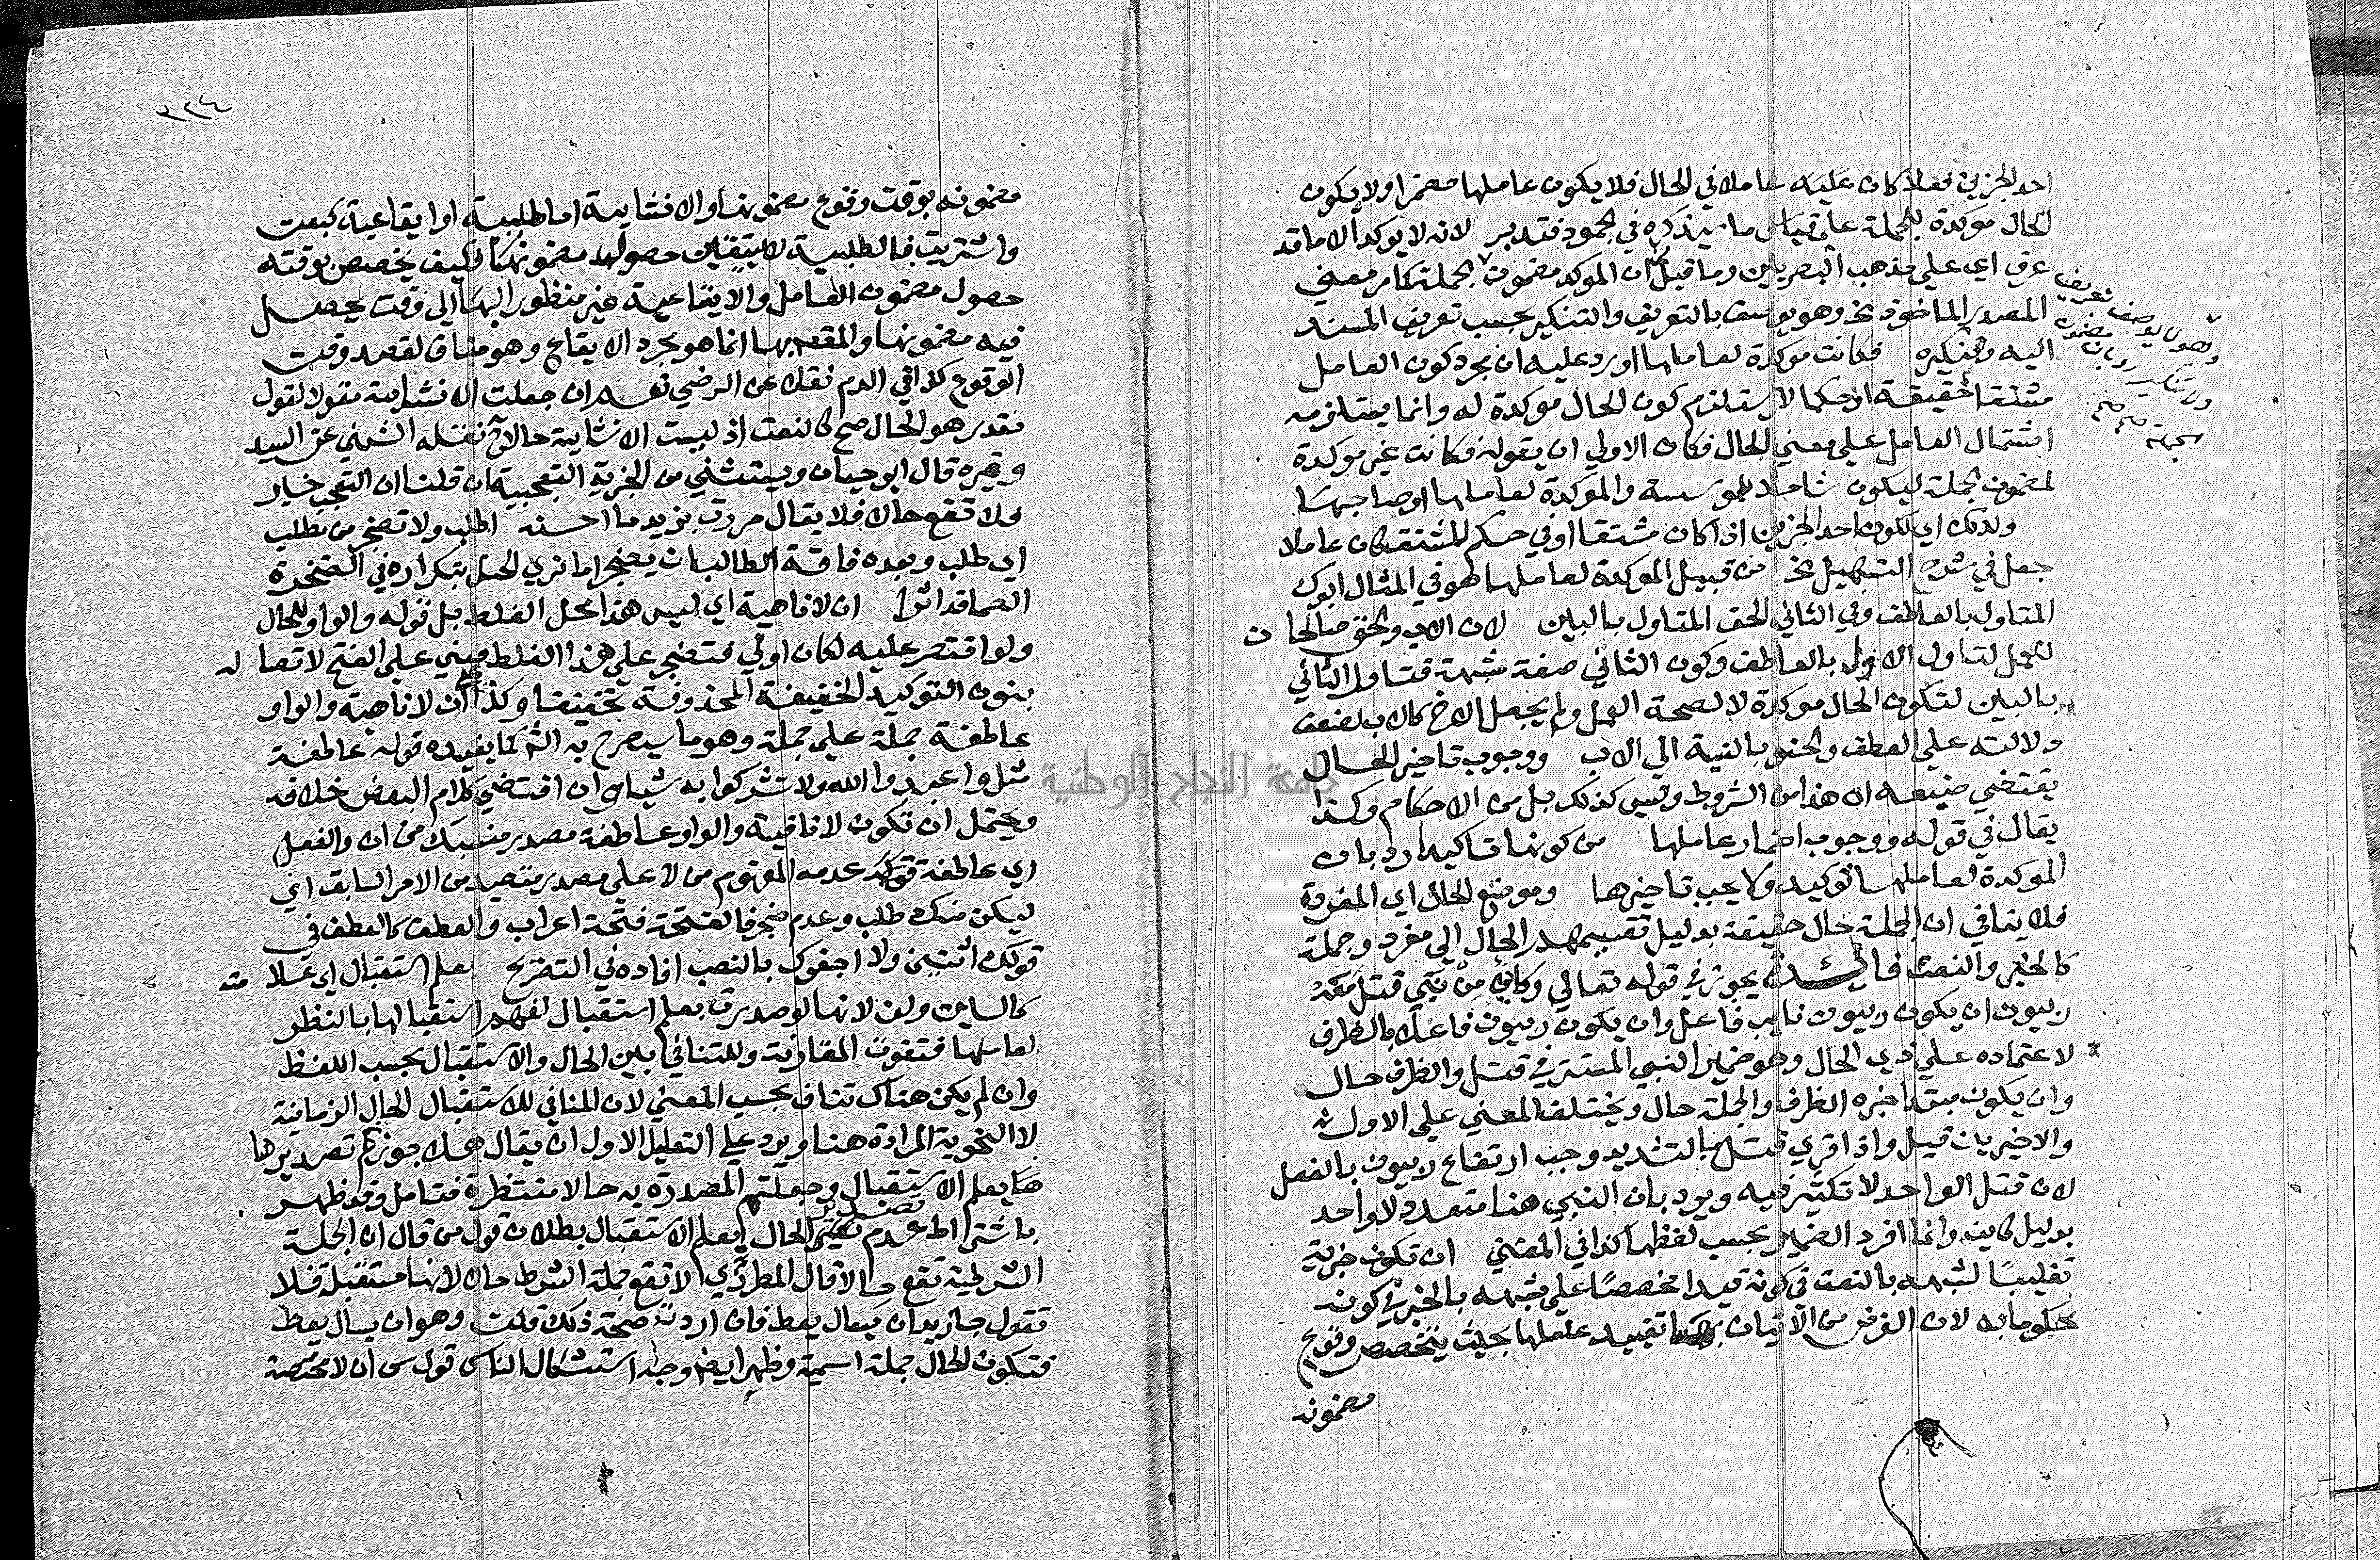 احد الجزين فعلا كان عليه عاملا في الحال فلا يكون عاملها مضمرا ولا يكون
الحال موكدة للجملة على قياس ما سيذكره في الجمود فتدبر لانه لا يوكد الا ما قد
عرف اي على مذهب البصريين وما قيل ان الموكد مضمون الجملة كما مر معني
المصدر الماخوذ الخ وهو يوصف بالتعريف والتنكير بحسب تعريف المسند
اليه وتنكيره فكانت موكدة لعاملها اورد عليه ان مجرد كون العامل
مشتقا حقيقة او حكما لا يستلزم كون الحال موكدة له وانما يستلزمه
اشتمال العامل على معني الحال فكان الاولي ان يقول فكانت غير موكدة
لمضمون الجملة ليكون شاملا للموسسة والموكدة لعاملها او صاحبها
ولذلك اي لكون احد الجزين اذا كان مشتقا او في حكم المشتق كان عاملا
جعل في شرح التسهيل الخ من قبيل الموكدة لعاملها هو في المثال ابوك
المتاول بالعاطف وفي الثاني الحق المتاول بالبين لان الاب والحق صالحان
للعمل لتاول الاول بالعاطف وكون الثاني صفة مشبهة فتاول الثاني
بالبين لتكون الحال موكدة لا لصحة العمل ولم يجعل الاخ كالاب لضعف
دلالته على العطف والحنو بالنسبة الي الاب ووجوب تاخير الحال
يقتضي صنيعه ان هذا من الشروط وليس كذلك بل من الاحكام وكذا
يقال في قوله ووجوب اضمار عاملها من كونها تاكيدا رد بان
الموكدة لعاملها توكيد ولا يجب تاخيرها وموضع الحال اي المفردة
فلا ينافي ان الجملة حال حقيقة بدليل تقسيمهم الحال الي مفرد وجملة
كالخبر والنعت فايدة يجوز في قوله تعالي وكاين من نبي قتل معه
ربيون ان يكون ربيون نايب فاعل وان يكون ربيون فاعلا بالظرف
لاعتماده على ذي الحال وهو ضمير النبي المستتر في قتل والظرف حال
وان يكون مبتدا خبره الظرف والجملة حال ويختلف المعني على الاول
والاخيرين قيل واذا قري قتل بالتشديد وجب ارتفاع ربيون بالفعل
لان قتل الواحد لا تكثير فيه ويرد بان النبي هنا متعدد لا واحد
بدليل كاين وانما افرد الضمير بحسب لفظها كذا في المغني ان تكون خبرية
تغليبا لشبهه بالنعت في كونه قيدا مخصصا على شبهه بالخبر في كونه
محكوما به لان الغرض من الاتيان بها تقييد عاملها بحيث يتخصص وقوع
مضمونه
٣٢٤
مضمونه بوقت وقوع مضمونها والانشايية اما طلبية او ايقاعية كبعت
واشتريت فالطلبية لا يتيقن حصول مضمونها فكيف يخصص بوقته
حصول مضمون العامل والايقاعية غير منظور اليها الي وقت يحصل
فيه مضمونها والمقصد بها انما هو مجرد الايقاع وهو مناف لقصد وقت
الوقوع كذا في الدم نقلا عن الرضي نعم ان جعلت الانشايية مقولا لقول
مقدر هو الحال صح كالنعت اذ ليست الانشايية حالا نقله الشمني عن السيد
وغيره قال ابو حيان ويستثني من الخبرية التعجبية ان قلنا ان التعجب خبر
فلا تقع حالا فلا يقال مررت بزيد ما احسنه اطلب ولا تضجر من مطلب
اي طلب وبعده فافة الطالب ان يضجرا اما تري الحبل بتكراره في الصخرة
الصما قد اثرا ان لا ناهية اي ليس هذا محل الغلط بل قوله والواو للحال
ولو اقتصر عليه لكان اولي فتضجر على هذا الغلط مبني على الفتح لاتصاله
بنون التوكيد الخفيفة المحذوفة تخفيفا وكذا على ان لا ناهية والواو
عاطفة جملة على جملة وهو ما سيصرح به الش كما يفيده قوله عاطفة
مثل واعبدوا الله ولا تشركوا به شيا وان اقتضي كلام البعض خلافه
ويحتمل ان تكون لا نافية والواو عاطفة مصدر منسبك من ان والفعل
اي عاطفة عدمه المفهوم من لا على مصدر متصيد من الامر السابق اي
ليكن منك طلب وعدم ضجر فالفتحة فتحة اعراب والعطف كالعطف في
قولك ائتيني ولا اجفوك بالنصب افاده في التصريح بعلم استقبال اي علامته
كالسين ولن لانها لو صدرت بعلم استقبال لفهم استقبالها بالنظر
لعاملها فتفوت المقارنة وللتنافي بين الحال والاستقبال بحسب اللفظ
وان لم يكن هناك تناف بحسب المعني لان المنافي للاستقبال الحال الزمانية
لا النحوية المرادة هنا ويرد على التعليل الاول ان يقال هلا جوزتم تصديرها
بعلم الاستقبال وجعلتم المصدرة به حالا منتظرة فتامل وقد ظهر
باشتراط عدم تصدير الحال بعلم الاستقبال بطلان قول من قال ان الجملة
الشرطية تقع حالا قال المطرزي لا تقع جملة الشرط حالا لانها مستقبلة فلا
تقول جا زيد ان يسال يعط فان اردت صحة ذلك قلت وهو ان يسال يعط
فتكون الحال جملة اسمية وظهر ايضا وجه استشكال الناس قول من ان لا مختصة